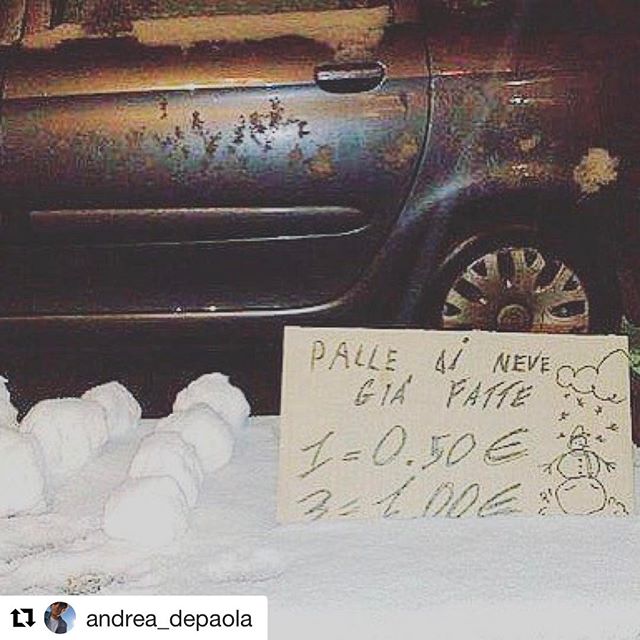 PALLE di NEVE
GIÁ FATTE
1 = 0.50 €
3 = 1.00 €
andrea_depaola